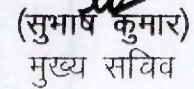 (सुभाष कुमार)
मुख्य सचिव